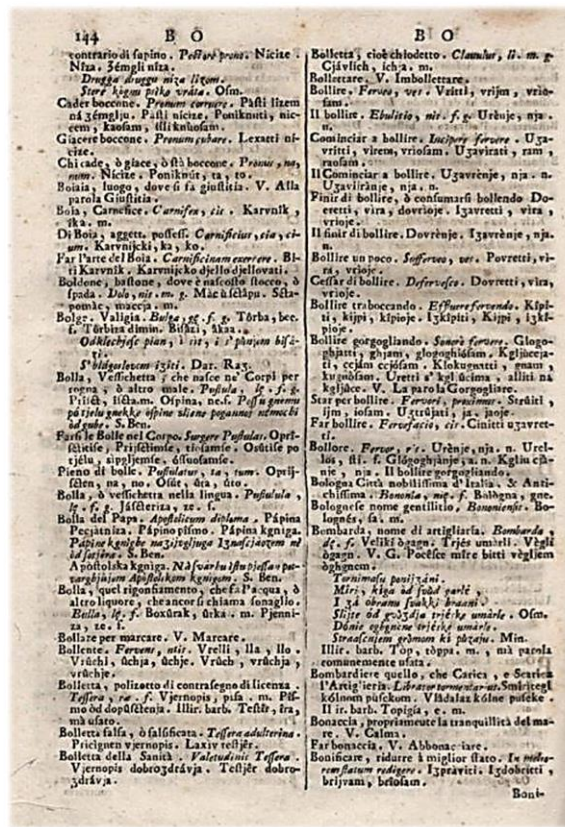 144 B O
contrario di supino. Pectore prono. Nicize.
Niza. Zemgli niza.
Drugga druggu niza lizom.
Stere kignu pitko vrata. Osm.
Cader boccone. Pronum corruere. Pasti lizem
na zemglju. Pasti nicize. Poniknuti, nic-
cem, kaosam, illi knuosam.
Giacere boccone. Pronum cubare. Lexatti ni-
cize.
Chi cade, ò giace, ò stà boccone. Pronus, na,
num. Nicize. Poniknut, ta, to.
Boiaia, luogo, dove si fa giustitia. V. Alla
parola Giustitia.
Boia, Carnefice. Carnifex, cis. Karvnik,
ika. m.
Di Boia, aggett. possess. Carnificius, cia, ci-
um. Karvnijcki, ka, ko.
Far l'arte del Boia. Carnificinam exercere. Bi-
ti Karvnik. Karvnijcko djello djellovati.
Boldone, bastone, dove è nascosto stocco, ò
spada. Dolo, nis. m. g. Màc ù sctàpu. Scta-
pomàc, maccja. m.
Bolge. Valigia. Bulga, gæ. f. g. Tôrba, bee.
f. Tôrbiza dimin. Bisâzi, âkaa.
Odkleches pian, i sit, i s'punjem bisà-
zi.
S'blágoslovem iziti. Dar. Raz.
Bolla, Vessichetta, che nasce ne' Corpi per
rogna, ò altro male. Pustula, læ. f. g.
Plisct, liscta. m. Ospina, nes. Pessi gnemu
pò tjelu gnekke ospine uliene poganne nemochi
od gube. S. Ben.
Farsi le Bolle nel Corpo. Surgere Pustulas. Opri-
sctitise, Prijsctimse, tiosamse. Osûtise po
tjelu, aipgljemse, ossuosamse.
Pieno di bolle. Pustulatus, ta, tum. Oprij-
scten, na, no. Osût, ûta, ûto.
Bolla, ò vessichetta nella lingua. Pustulula,
læ. f. g. Jáscteriza, ze. f.
Bolla del Papa. Apostolicum diploma. Pápina
Pecjàtniza. Pápino pismo. Pápina kgniga.
S. Ben.
Apòstolska kgniga.
S. Ben.
Bolla, quel rigonfiamento, che fa l'acqua, ò
altro liquore, che ancor si chiama sonaglio.
Bulla, læ. f. g. Boxûrak, ûrka. m. Pjenni-
za, ze. f.
Bollare per marcare. V. Marcare.
Bollente. Fervens, ntis. Vrelli, lla, llo.
Vrûchi, ûchja, ûchje. Vrûch, vrûchja,
vrûchje.
Bolletta, polizotto di contrasegno di licenza.
Tessera, ræ. f. Vjernopis, pisa. m. Pis-
mo òd dopûstènja. Illir. barb. Testir, ira,
mà usato.
Bolletta falsa, ò falsificata. Tessera adulterina.
Pricignen vjernopis. Laxiv testjêr.
Bolletta della Sanità. Valetudinis Tessera.
Vjernopis dobrozdrávja. Testjêr dobro-
zdrávja.
B O
Bolletta, cioè chiodetto. Clavulus, li. m. g.
Cjávlich, icha. m.
Bollettare. V. Imbollettare.
Bollire, Ferveo, ves. Vritti, vrijm, vrio-
sam.
Il bollire. Ebulitio, nis. f. g. Urènje, nja.
n.
Cominciar a bollire. Incipere fervere. Uza-
vritti, virem, vriosam. Uzavirati, ram,
raosam.
Il Cominciar a bollire. Uzavrènje, nja. n.
Uzavirànje, nja. n.
Finir di bollire, ò consumarsi bollendo Do-
vretti, vira, dovrioje. Izavretti, vira,
vrioje.
Il finir di bollire. Dovrènje. Izavrènje, nja.
n.
Bollire un poco. Sufferveo, ves. Povretti, vi-
ra, vrioje.
Cessar di bollire. Defervesco. Dovretti, vira,
vrioje.
Bollire traboccando. Effluere fervendo. Kìpi-
ti, kijpi, kîpioje. Izkîpiti, Kijpi, izkî-
pioje.
Bollire gorgogliando. Sonorè fervere. Glogo-
ghjatti, ghjam, gloghoghiòsam. Kgliùccja-
ti, ccjám ccjósam. Klokugnatti, gnam,
kugnòsam. Uretti s'kgliùcima, alliti nà
kgljùce. V. La parola Gorgogliare.
Star per bollire. Fervori, proximus. Strûiti,
ijm, iosam. Uztrûjati, ja, jaoje.
Far bollire. Fervefacio, cis. Cinitti uzavret-
ti.
Bollore. Fervor, ris. Urènje, nja. n. Urel-
lòs, sti. f. Glògoghjànje, a. n. Kgliucjà-
nje, nja. Il bollire gorgogliando.
Bologna Città nobilissima d'Italia, & Anti-
chissima. Bononia, niæ. f. Bològna, gne.
Bolognese nome gentilitio. Bononiensis. Bo-
lognês, sa. m.
Bombarda, nome di artigliaria. Bombarda,
dæ. f. Veliki ògagn. Trjes umàrli. Vêgli
ògagn. V. G. Pocêsce mîre bitti vêgljem
òghgnem.
Tornimasu ponijzáni.
Miri, kîga od svûd parlè,
I zà obranu svakki braani.
Slijte òd gvòzdja trjêske umàrle. Osm.
Dònie oghgnene trjêske umàrle.
Straascnjem gròmom ki pûzaju. Min.
Illir. barb. Tòp, tòppa. m, mà parola
comunemente usata.
Bombardiere quello, che Carica, e Scarica
l'Artiglieria. Librator tormentarius. Smiritegl
kólnom pûsckom. Vládalaz kólne pûscke.
Il ir. barb. Topígia, e. m.
Bonaccia, propriamente la tranquillità del ma-
re. V. Calma.
Far bonaccia. V. Abbonacciare.
Bonificare, ridurre à miglior stato. In melio-
rem statum redigere. Izpraviti. Izdobritti,
brijvam, briosam.
Boni-